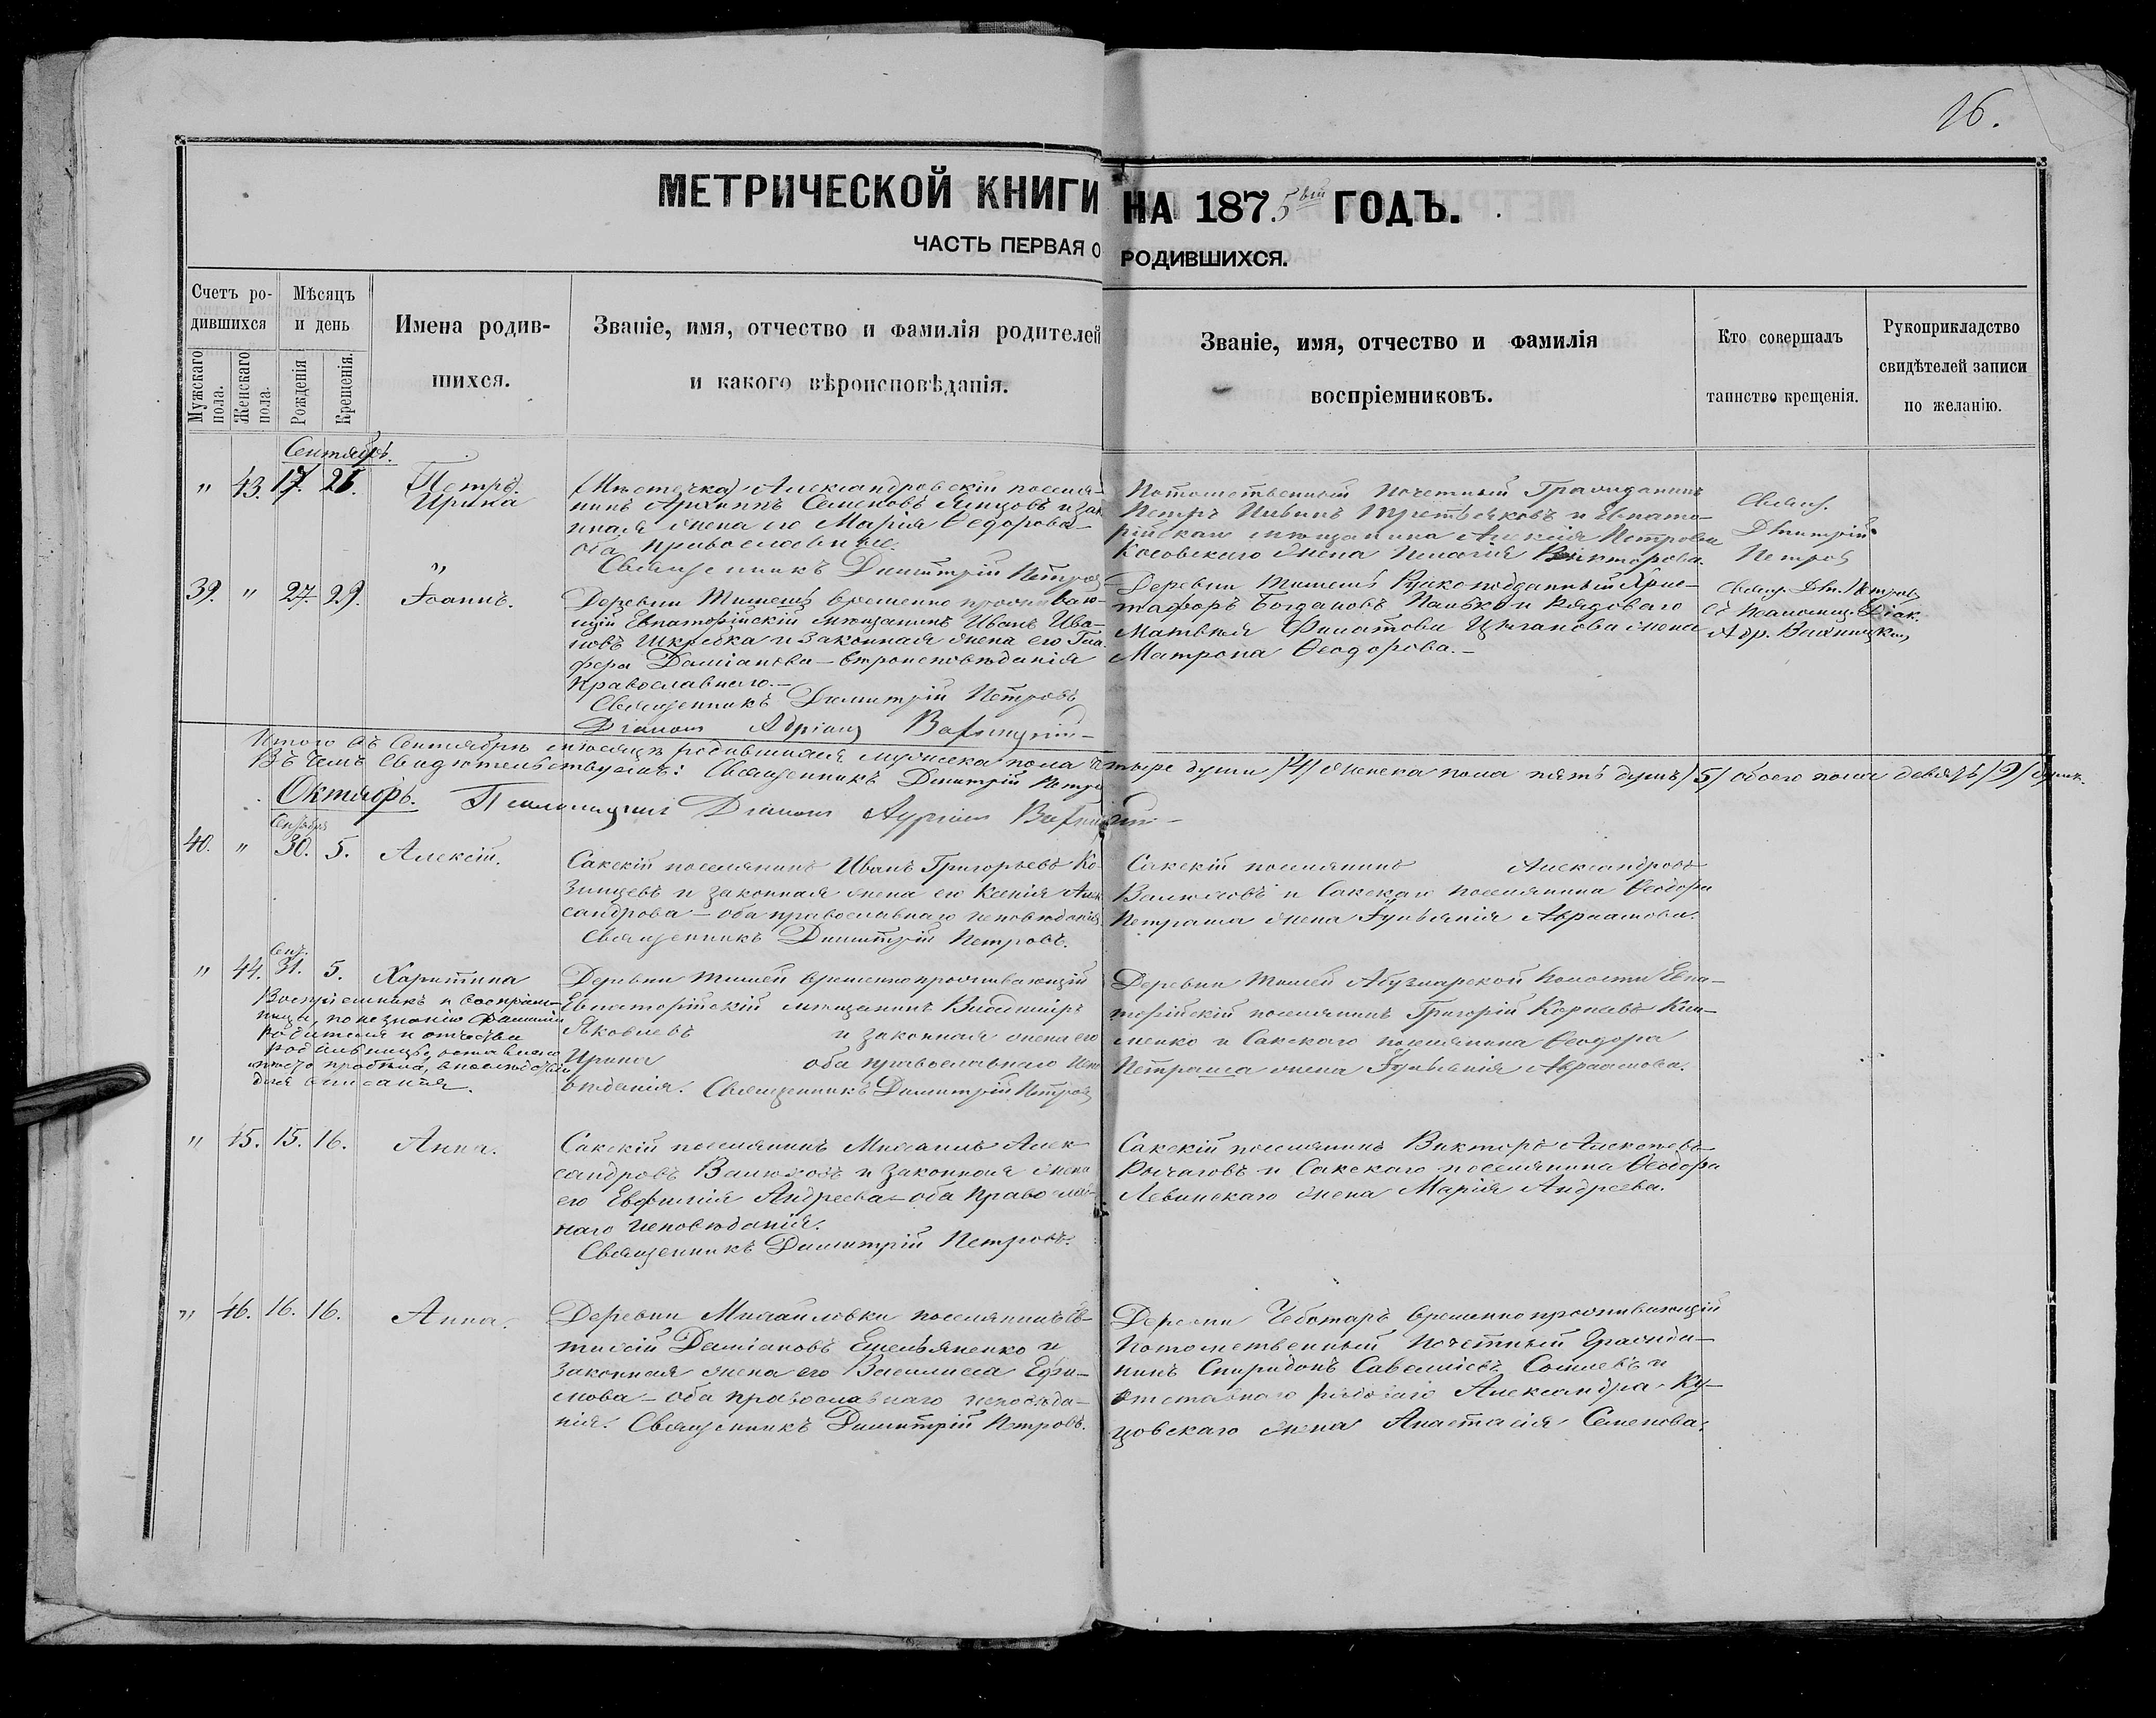 16.
МЕТРИЧЕСКОЙ КНИГИ НА 1875ый ГОДЪ.
ЧАСТЬ ПЕРВАЯ О РОДИВШИХСЯ.
Счетъ ро-
дившихся
Мужскаго пола.
Женскаго пола.
Мѣсяцъ
и день
Рожденія
Крещенія.
Имена родив-
шихся.
Званіе, имя, отчество и фамилія родителей
и какого вѣроисповѣданія.
Званіе, имя, отчество и фамилія
воспріемниковъ.
Кто совершалъ
таинство крещенія.
Рукоприкладство
свидѣтелей записи
по желанію.
Сентябрь.
" 43. 17. 21.
Ирина
Александровскій поселя-
нинъ Архиппъ Семеновъ и зак
нная жена его Марія Ѳедорова
оба православные.
Священникъ Димитрій Петровъ
Потомственный Почетный Гражданинъ
Петръ Ивановъ Третьяковъ и Евпато-
рійскаго мѣщанина Алексія Петрова
Косовскаго жена Пелагія Викторова.
Свящ.
Дмитрій
Петровъ
39. " 27. 29.
Іоаннъ.
Деревни Тишешъ временно проживаю-
щій Евпаторійскій мѣщанинъ Иванъ Ива-
новъ Шкребка и законная жена его Гла
фера Даміанова – вѣроисповѣданія
Православнаго.–
Священникъ Димитрій Петровъ
Діаконъ Адріанъ
Деревни Тишешъ Хрис-
тофоръ Богдановъ и Рядоваго
Матвѣя Филатова Цыганова жена
Матрона Ѳеодорова.–
Свящ. Дм. Петровъ
съ Псаломщ. Діак.
Адр.
Итого въ Сентябрѣ мѣсяцѣ родившихся мужеска пола четыре души /4/ женска пола пять душъ /5/ обоего пола девять /9/ душъ.
Въ чемъ свидѣтельствуемъ: Священникъ Димитрій Петровъ
Октябрь.
Псаломщикъ Діаконъ Адріанъ
Сентября
40. " 30. 5.
Алексій.
Сакскій поселянинъ Иванъ Григорьевъ Ко-
зинцевъ и законная жена его Ксенія Алек
сандрова – оба православнаго исповѣданія
Священникъ Димитрій Петровъ.
Сакскій поселянинъ Александровъ
Валюховъ и Сакскаго поселянина Ѳеодора
Петраша жена Іуліанія Авраамова.
Сент.
" 44. 31. 5.
Харитина
Воспріемникъ и воспріем-
ница, по незнанію фамиліи
родителя и отчества
родильницы, оставлено
мѣсто пробѣла,
для вписанія.
Деревни Тишей временно проживающій
Евпаторійскій мѣщанинъ Владиміръ
Яковлевъ и законная жена его
Ирина оба православнаго испо
вѣданія. Священникъ Димитрій Петровъ
Деревни Тишей Абузларской Волости Евпа-
торійскій поселянинъ Григорій Корнѣевъ Кли-
менко и Сакскаго поселянина Ѳеодора
Петраша жена Іуліанія Авраамова.
" 45. 15. 16.
Анна.
Сакскій поселянинъ Михаилъ Алек
сандровъ Валюховъ и законная жена
его Евфимія Андреева – оба православ-
наго исповѣданія.
Священникъ Димитрій Петровъ.
Сакскій поселянинъ Викторъ Алексѣевъ
Рычаговъ и Сакскаго поселянина Ѳеодора
Левинскаго жена Марія Андреева.
" 46. 16. 16.
Анна.
Деревни Михайловки поселянинъ Ев-
тихій Даміановъ Емельяненко и
законная жена его Василисса Ефи-
мова – оба православнаго исповѣда-
нія. Священникъ Димитрій Петровъ.
Деревни Чеботаръ временно проживающій
Потомственный Почетный Гражда-
нинъ Спиридонъ Савельіевъ и
отставнаго рядоваго Александра Ку-
цовскаго жена Анастасія Семенова.